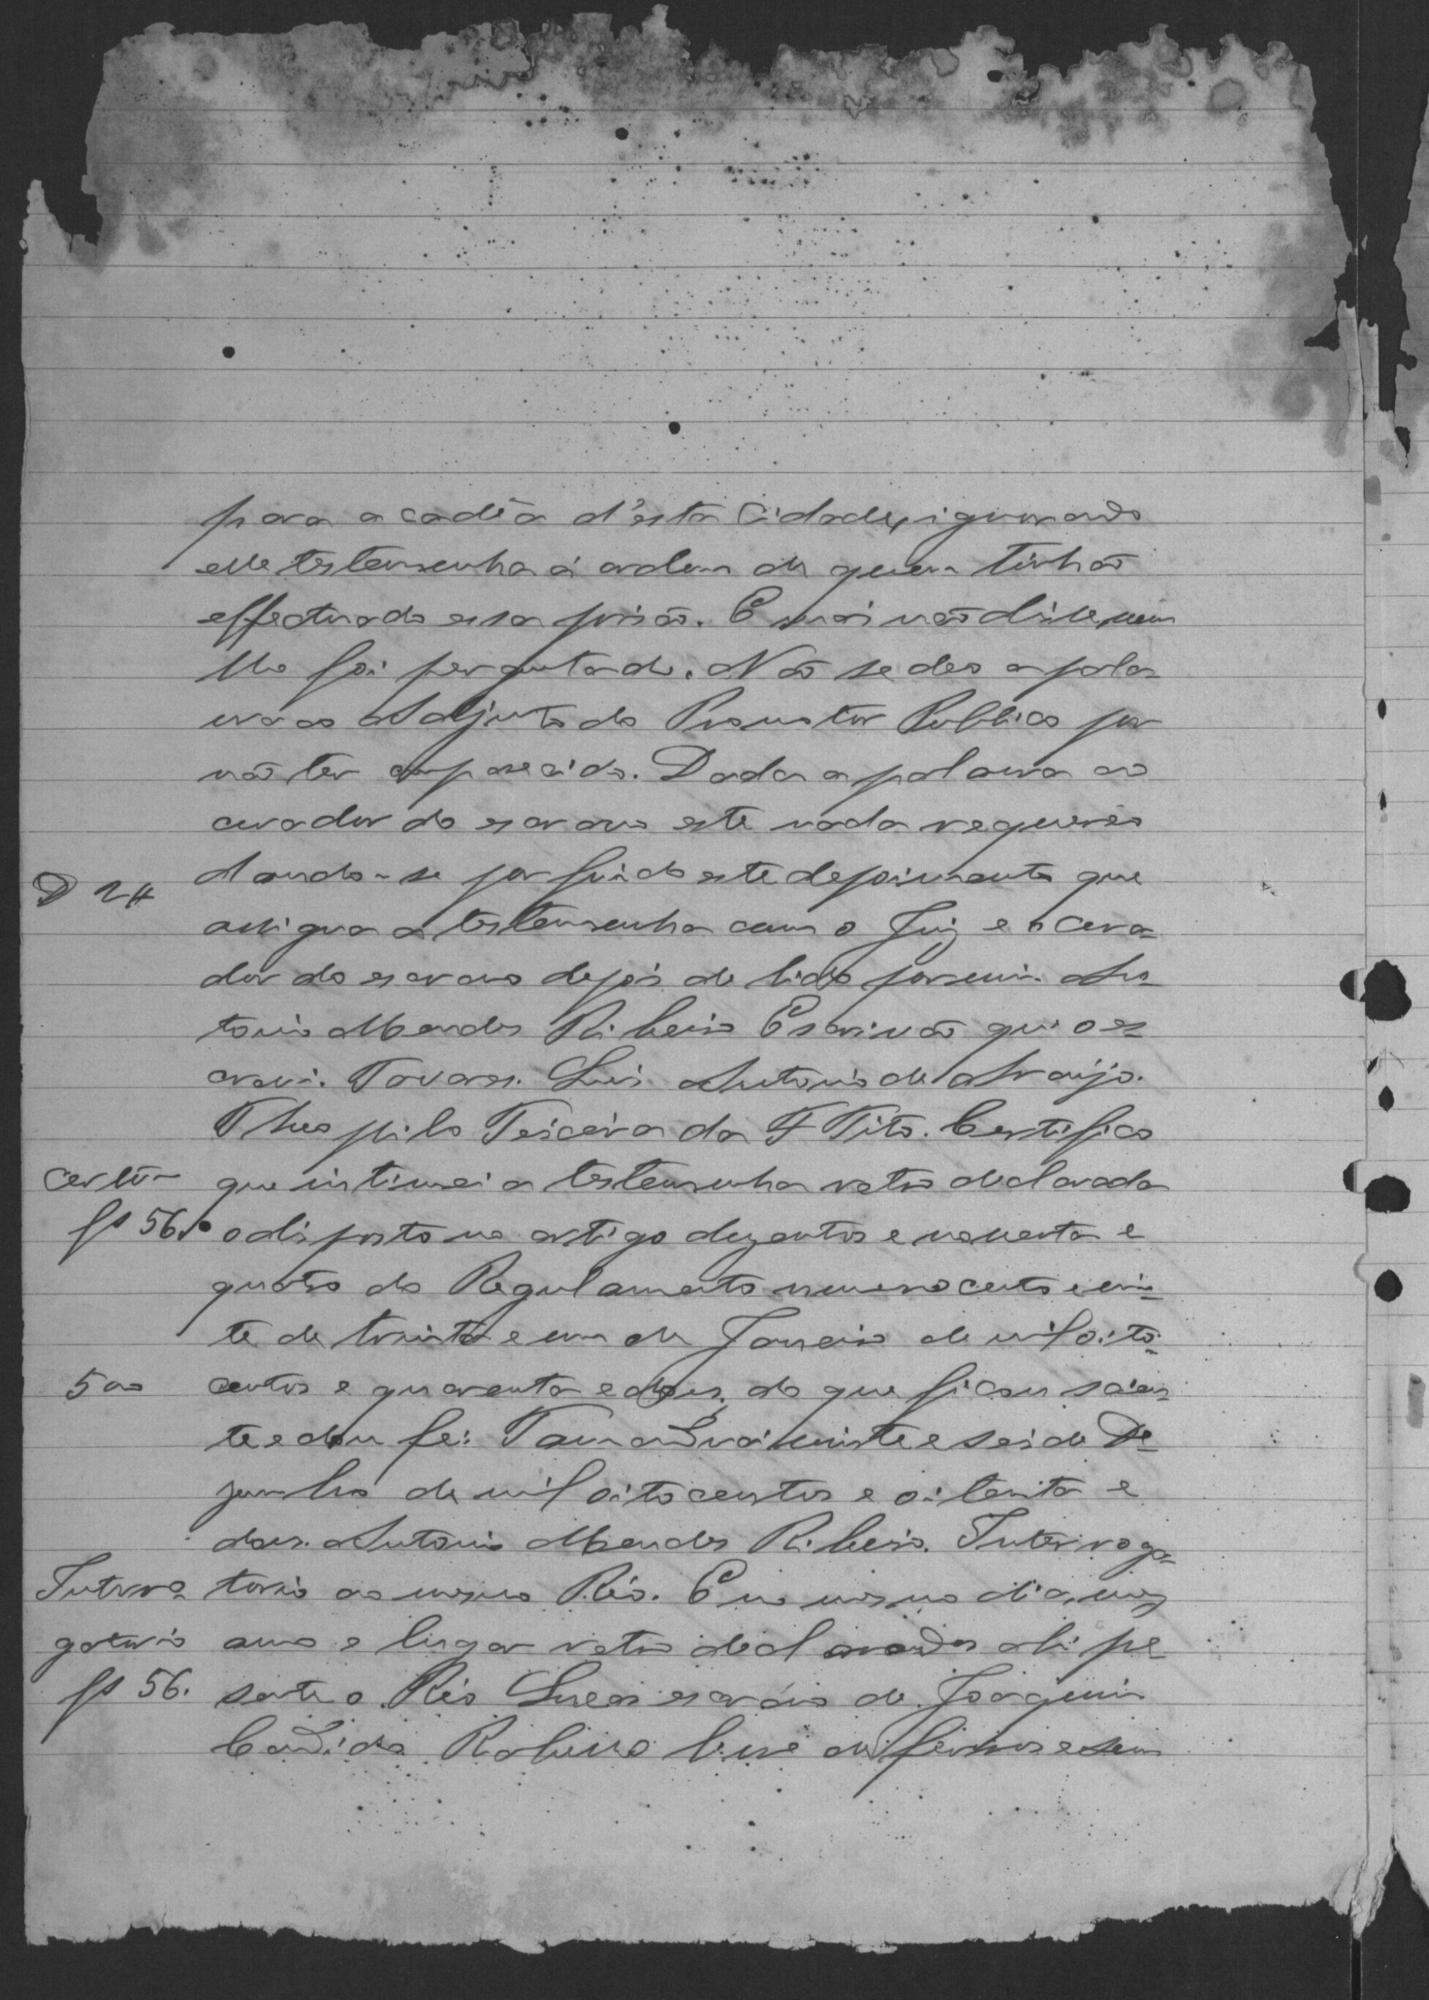 para a cadêa d'esta Cidade, ignorando
elle testemunha á ordem de quem tinhão
effectuado essa prisão. E mais não disse, nem
lhe foi perguntado. Não se deo a pala-
vra ao Adjunto do Promotor Publico por
não ter comparecido. Dada a palavra ao
curador do escravo este nada requereo
D 2# dando-se por findo este depoimento que
assigna a testemunha com o Juiz e o cura-
dor do escravo depois de lido por mim An-
tonio Mendes Ribeiro Escrivão que o es-
crevi. Tavares. Luis Antonio de Araujo.
Theophilo Teixeira da F Tito. Certifico
Certão que intimei a testemunha retro declarada
fs 56. o disposto no artigo duzentos e noventa e
quatro do Regulamento numero cento e vin-
te de trinta e um de Janeiro de mil oito-
500 centos e quarenta e dous, do que ficou scien-
te e dou fé. Tamanduá vinte e seis de De
junho de mil oitocentos e oitenta e
dous. Antonio Mendes Ribeiro. Interroga-
Interro- torio ao mesmo Réo. E no mesmo dia, mez
gatorio anno e lugar retro declarados ahi pe
fs 56. sente o Réo Lucas escravo de Joaquim
Candido Ribeiro livre de ferros e sem